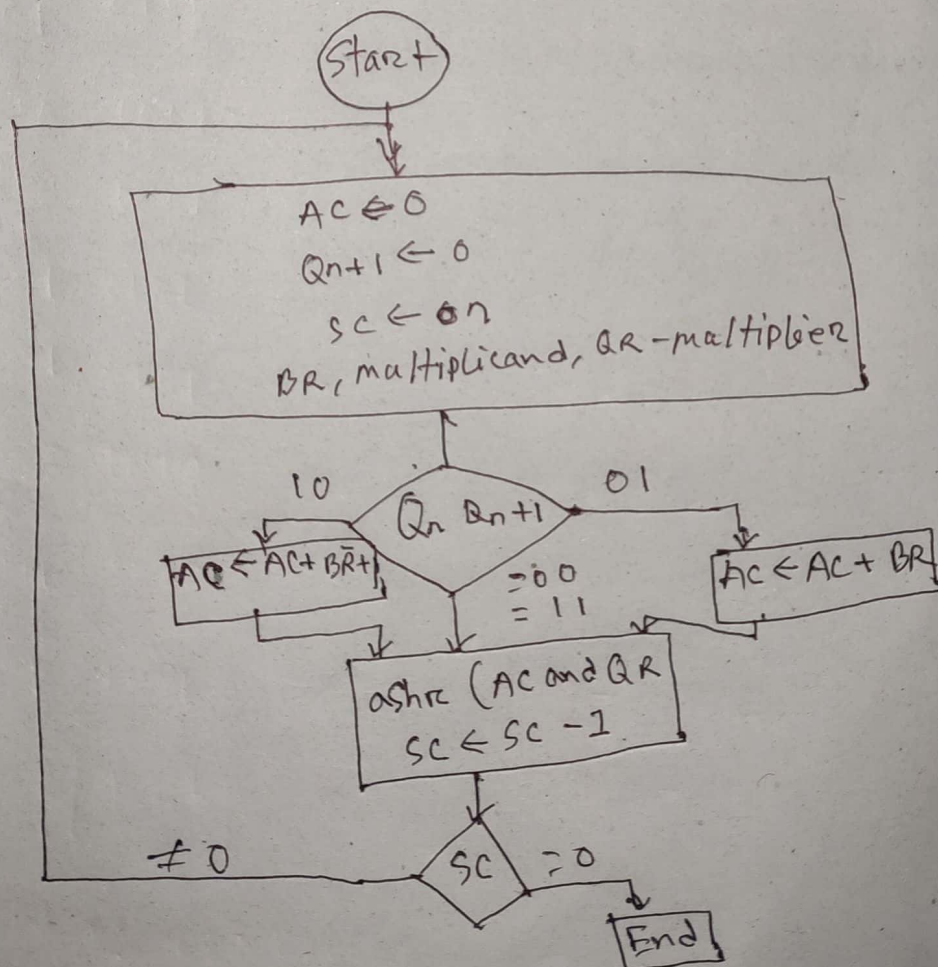 Start
AC ← 0
Qn+1 ← 0
SC ← n
BR, multiplicand, QR-maltiplier
10
Qn Qn+1
01
AC ← AC + BR̄ + 1
=00
=11
AC ← AC + BR
ashr (AC and QR
SC ← SC - 1
≠ 0
SC
=0
End